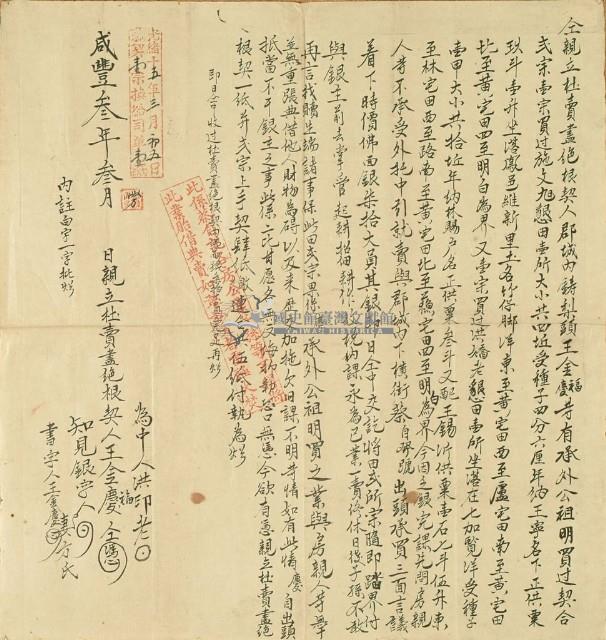 仝親立杜賣盡絕根契人郡城內鑄犁頭王金福慶等有承外公祖明買過契合
弍宗壹宗買過施文旭懇田壹所大小共四坵受種子四分六厘年納王寧名下正供粟
玖斗壹升坐落嵌至維新里土名竹仔腳洋東至黃宅田西至盧宅田南至黃宅田
北至黃宅田四至明白為界又壹宗買過洪嬌老懇田壹所坐落在七加覽洋受種子
壹甲大小共拾坵年納林賜戶名正供粟叁斗又配王錫沂供粟壹石七斗伍升東
至林宅田西至路南至黃宅田北至蘇宅田四至明白為界今因乏銀完課先問房親
人等不承受外托中引就賣與郡城內下橫街蔡自舉號出頭承買三面言議
着下時價佛面銀柒拾大員其銀即日仝中交訖將田弍所宗隨即踏界付
與銀主前去掌管起耕招佃耕作收稅納課永為己業一賣終休日後子孫不敢
再言找贖生端諸事保此田弍宗田係承外公祖明買之業與房親人等無干
並無重張典借他人財物為碍以及來歷交加拖欠日課不明等情如有此情慶自出頭
抵當不干銀主之事此係二比甘愿各無反悔抑勒恐口無憑今欲有憑親立杜賣盡絕
根契一紙并弍宗上手契肆紙歕連共伍紙付執為炤
即日仝收過杜賣盡絕根契內佛面銀柒拾大員完足再炤
內註白字一字批炤
為中人洪印老
日親立杜賣盡絕根契人王金慶福仝
知見銀字人黃方氏
書字人王金慶
咸豐叁年叁月
光緒十五年三月初五日
國史館臺灣文獻館
TAIWAN HISTORICA